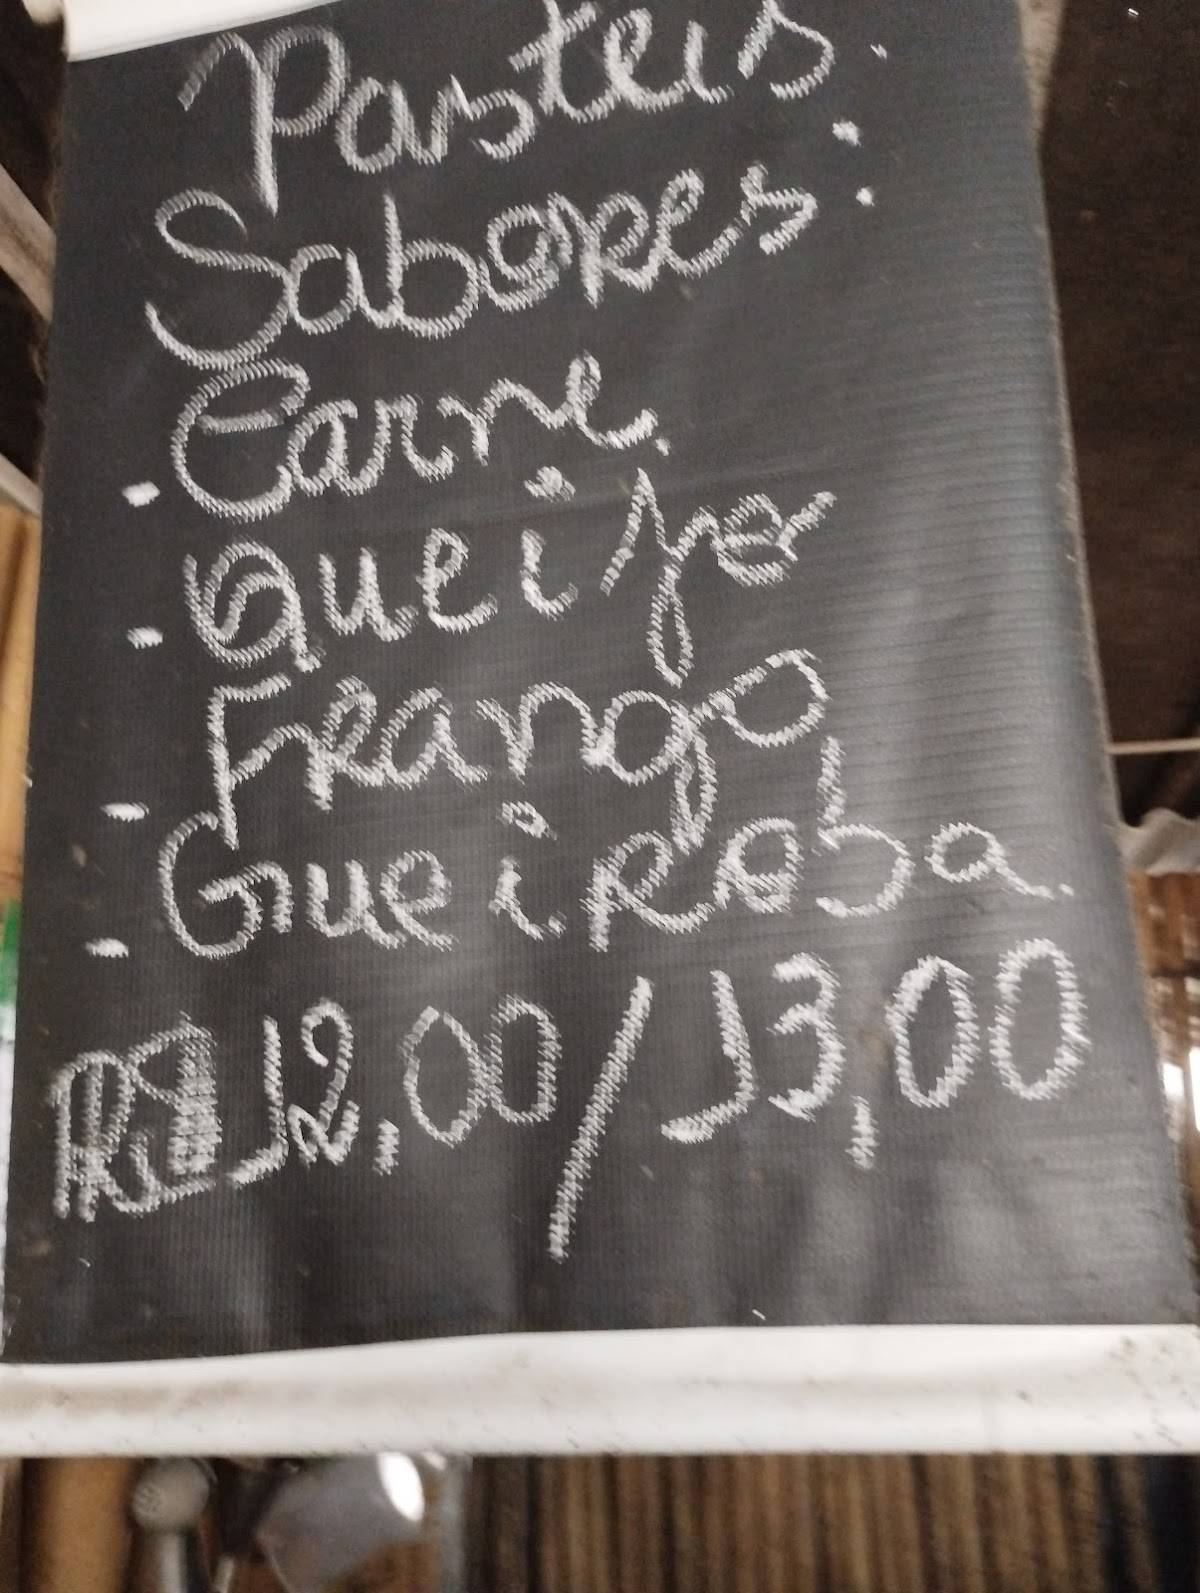 Pasteis.
Sabores:
. Carne.
. Queijo
. Frango
. Gueiroba.
R$ 12,00/13,00